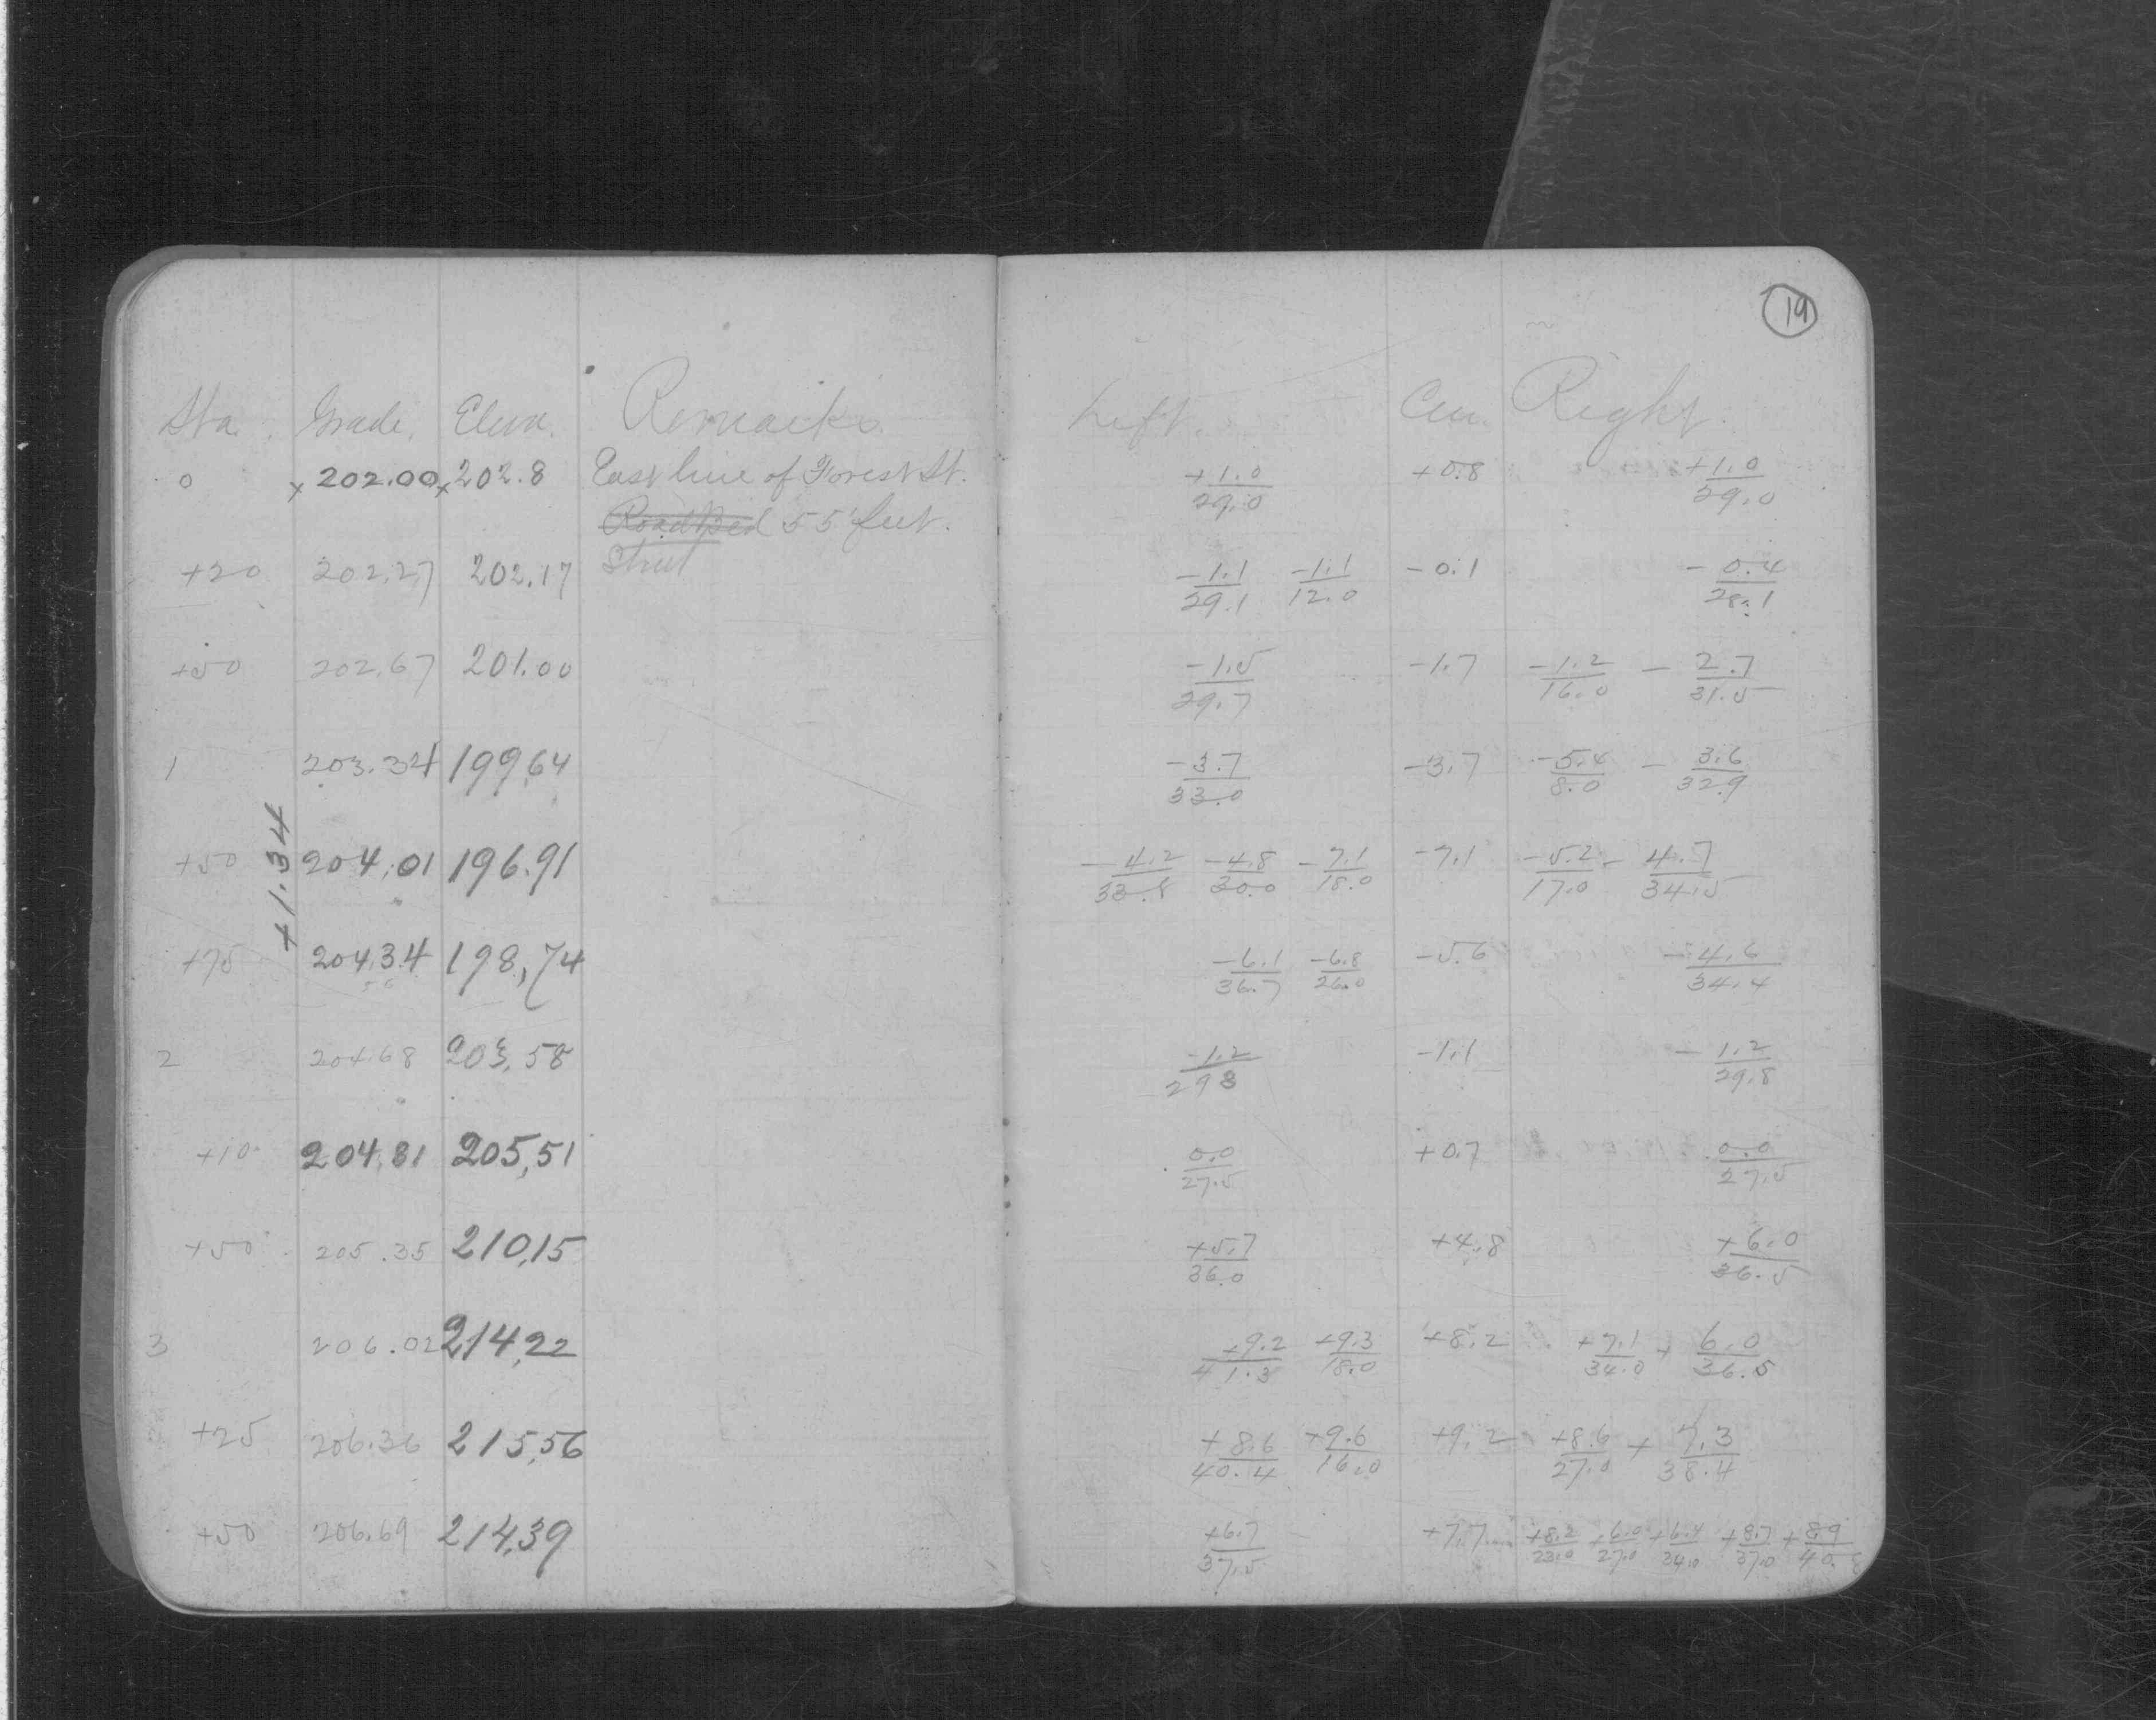 19
Sta. Grade. Eleva. Remarks Left. Cen. Right.
0 x 202.00 x 202.8 East line of Forest St. +1.0/29.0 +0.8 +1.0/29.0
Road Bed 55 feet.
Street
+20 202.27 202.17 -1.1/29.1 -1.1/12.0 -0.1 -0.4/28.1
+50 202.67 201.00 -1.5/29.7 -1.7 -1.2/16.0 -2.7/31.5
1 203.34 199.64 -3.7/33.0 -3.7 -5.4/8.0 -3.6/32.9
+1.34
+50 204.01 196.91 -4.2/33.8 -4.8/30.0 -7.1/18.0 -7.1 -5.2/17.0 -4.7/34.5
+75 204.34 198,74 -6.1/36.7 -6.8/26.0 -5.6 -4.6/34.4
2 204.68 203,58 -1.2/29 8 -1.1 -1.2/29.8
+10 204.81 205,51 0.0/27.5 +0.7 0.0/27.5
+50 205.35 210,15 +5.7/36.0 +4.8 +6.0/36.5
3 206.02 214,22 +9.2/41.3 +9.3/18.0 +8.2 +7.1/34.0 +6.0/36.5
+25 206.36 215,56 +8.6/40.4 +9.6/16.0 +9.2 +8.6/27.0 +7.3/38.4
+50 206.69 214,39 +6.7/37.5 +7.7 +8.2/23.0 +6.0/27.0 +6.4/34.0 +8.7/37.0 +8.9/40.